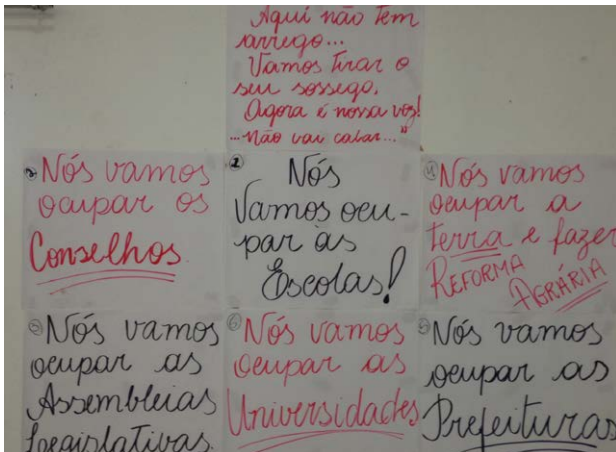 Aqui não tem
arrego...
Vamos tirar o
seu sossego.
Agora é nossa vez!
...não vai calar..."
Nós vamos
ocupar os
Conselhos
① Nós
Vamos ocu-
par as
Escolas!
Nós vamos
ocupar a
terra e fazer
REFORMA
AGRÁRIA
Nós vamos
ocupar as
Assembleias
Legislativas.
⑥ Nós vamos
ocupar as
Universidades
Nós vamos
ocupar as
Prefeituras